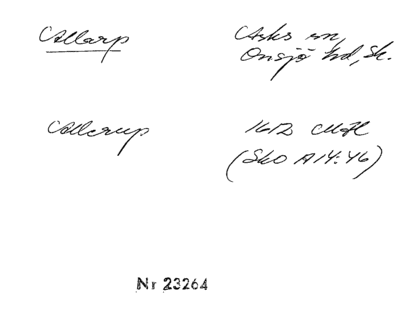 Allarp
Asks sn,
Onsjö hd, Sk.
Allerup
1612 Mtl
(SkO A14:46)
Nr 23264